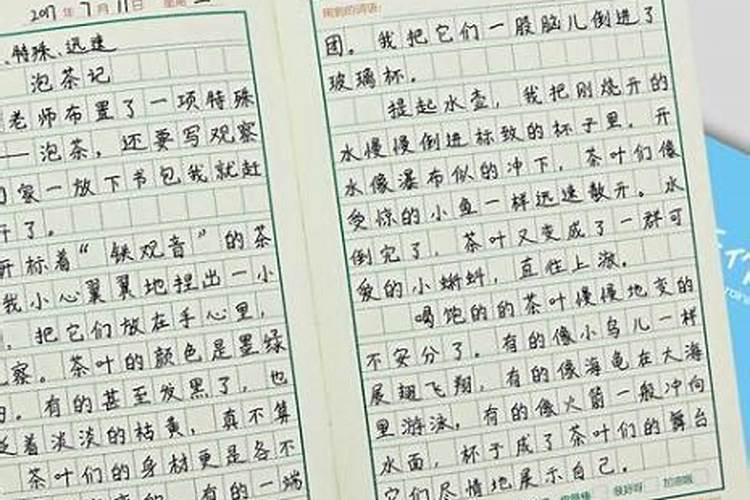 2017年7月11日 星期二
、特殊、迅速
泡茶记
老师布置了一项特殊
——泡茶，还要写观察
家一放下书包我就赶
开了。
开标着“铁观音”的茶
我小心翼翼地捏出一小
，把它们放在手心里，
察。茶叶的颜色是墨绿
。有的甚至发黑了，也
着淡淡的枯黄，真不算
茶叶们的身材更是各不
有的一端
用到的词语：
团。我把它们一股脑儿倒进了
玻璃杯。
提起水壶，我把刚烧开的
水慢慢倒进标致的杯子里。开
水像瀑布似的冲下，茶叶们像
受惊的小鱼一样迅速散开。水
倒完了，茶叶又变成了一群可
爱的小蝌蚪，直往上游。
喝饱的的茶叶慢慢地变的
不安分了。有的像小鸟儿一样
展翅飞翔，有的像海龟在大海
里游泳，有的像火箭一般冲向
水面，杯子成了茶叶们的舞台
它们尽情地展示自己。
很好呀 加油哦